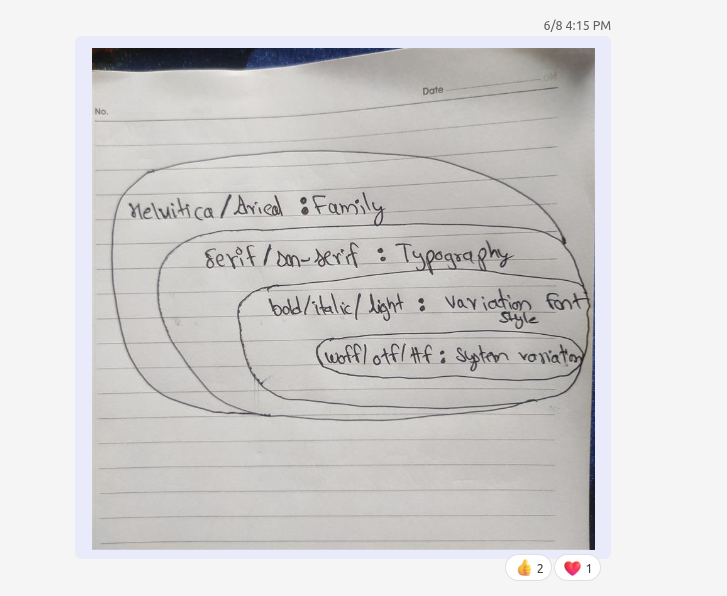 6/8 4:15 PM
Date
No.
Helvitica / Aried : Family
Serif / san-serif : Typography
bold/italic/light : variation font
style
woff/otf/ttf : system variation
👍 2 ❤️ 1